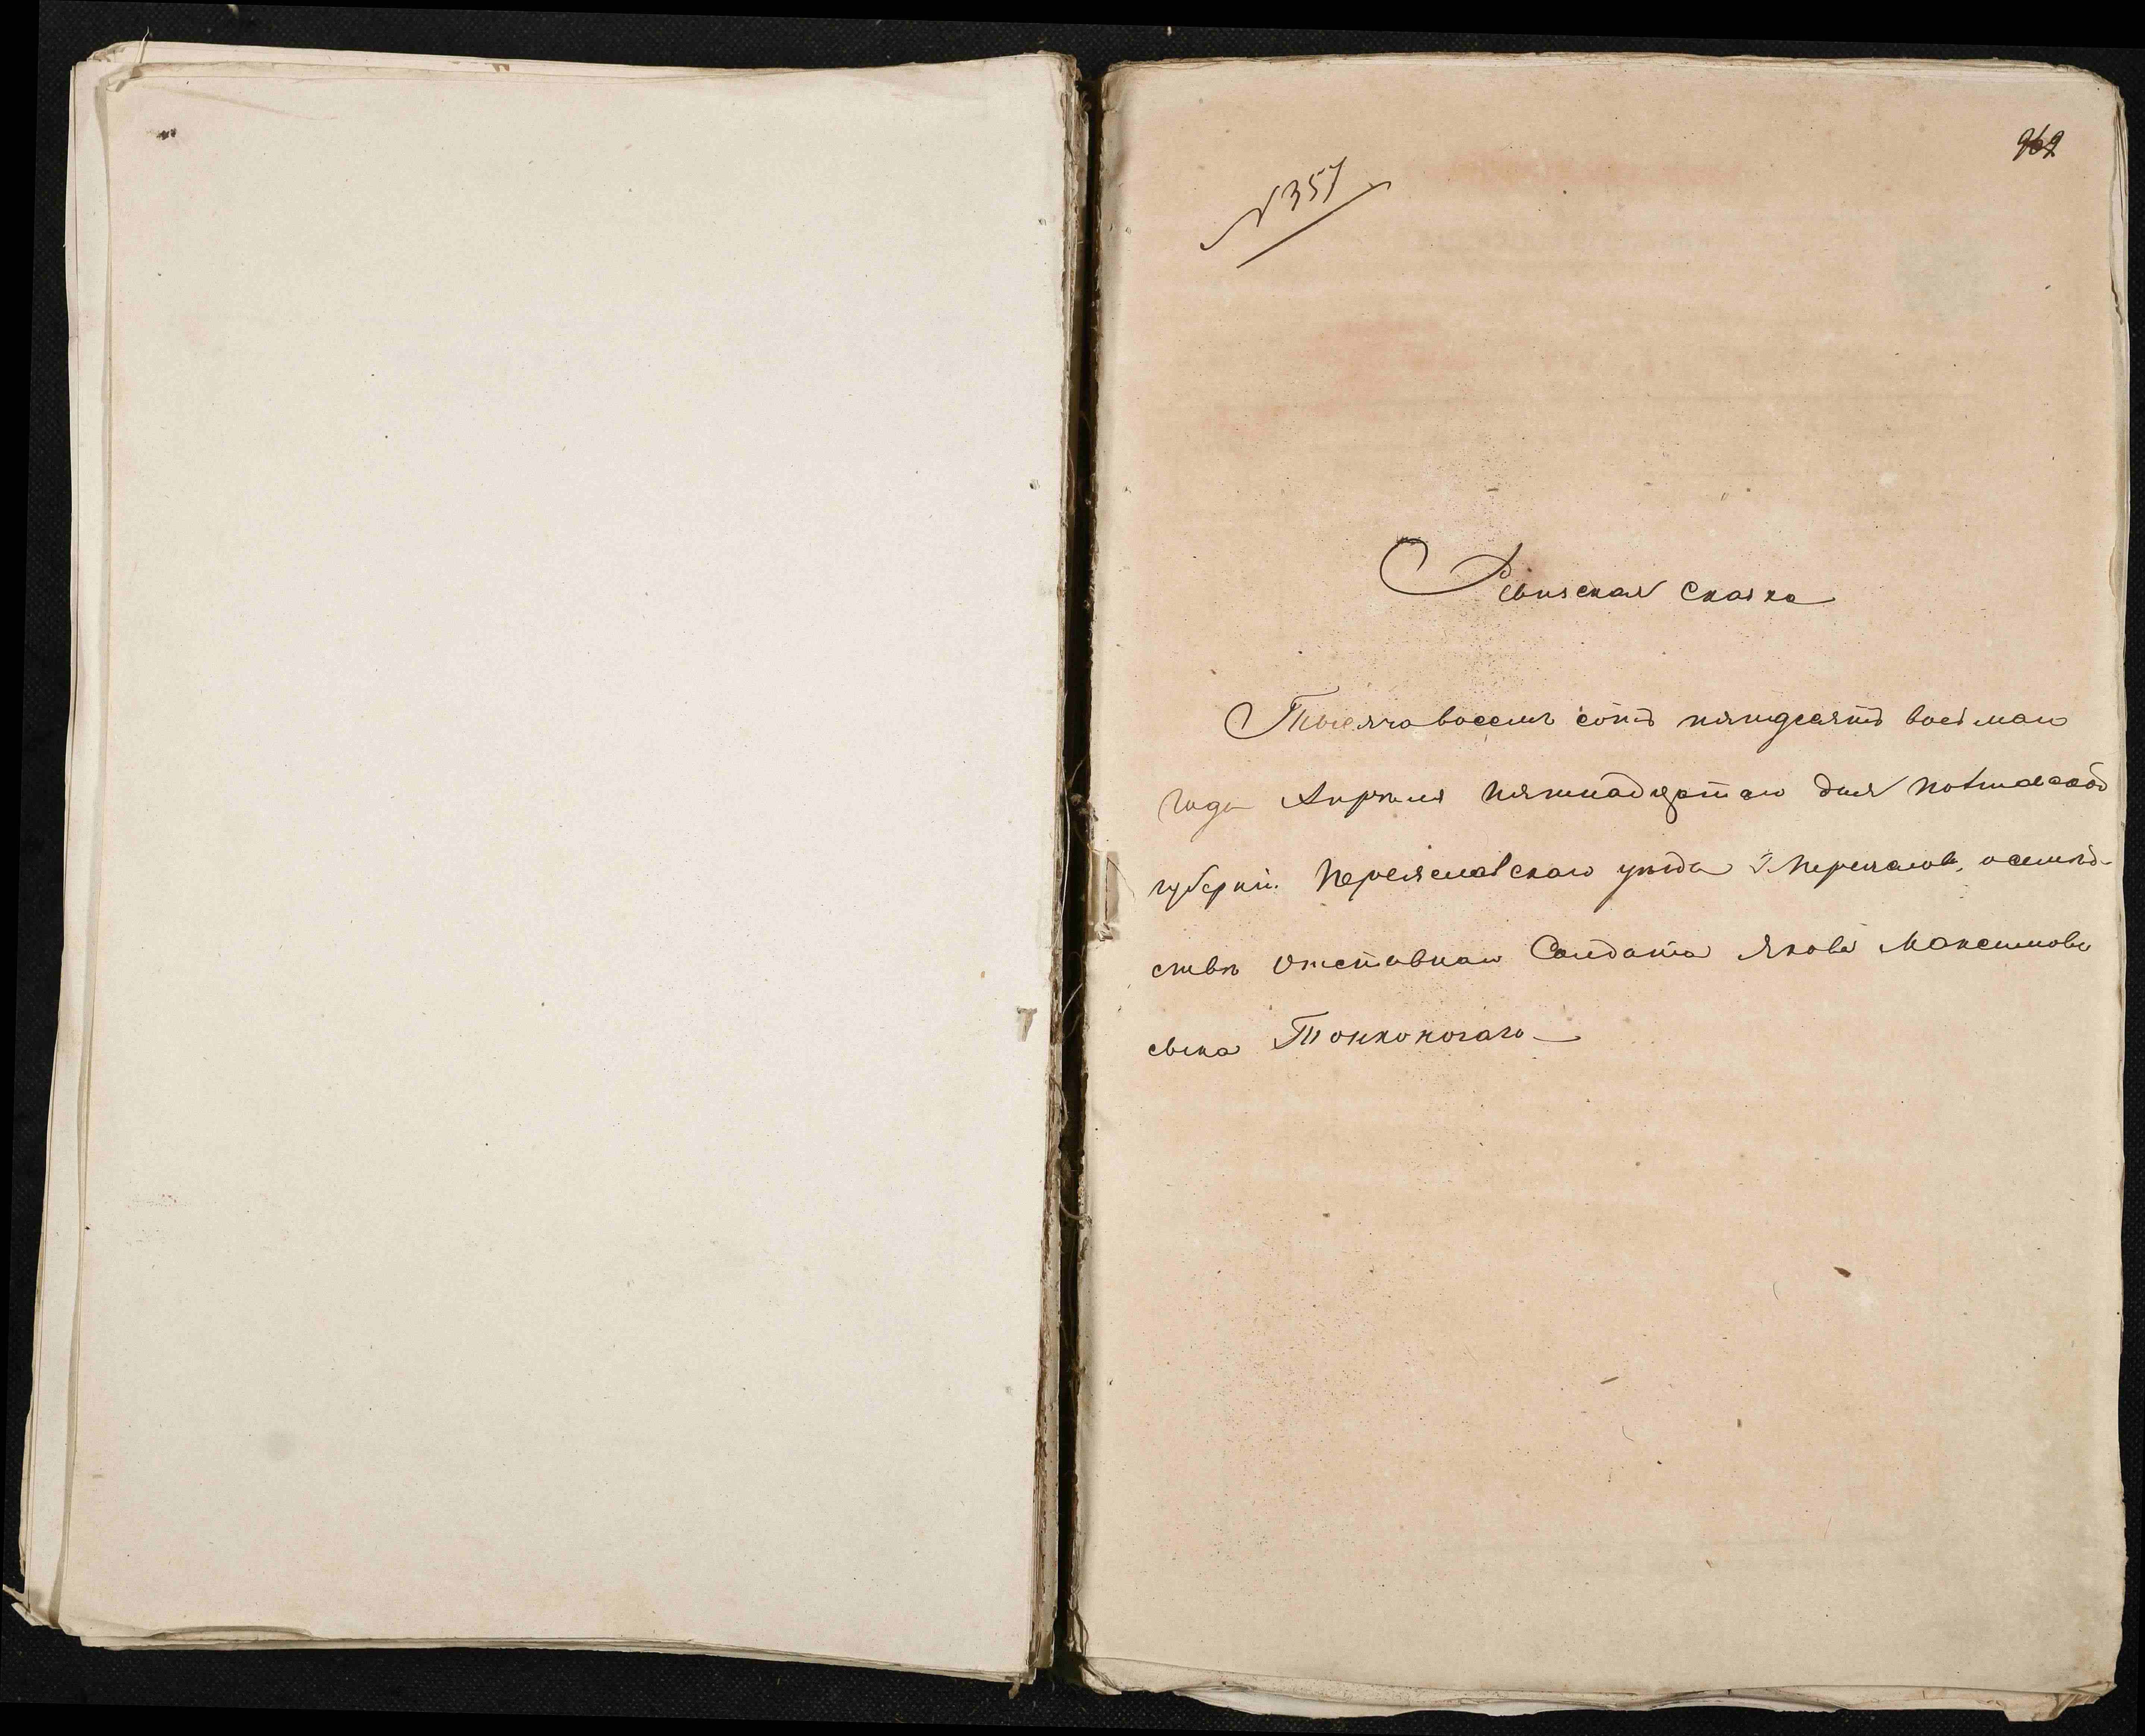 962
№ 357
Ревизская сказка
Тысяча восемь сотъ пятдесятъ восмаго
года Апрѣля пятнадцятаго дня Полтавской
губерніи Переяславскаго уѣзда о семѣй-
ствѣ отставнаго Салдата Якова Максимова
сына Тонконогаго